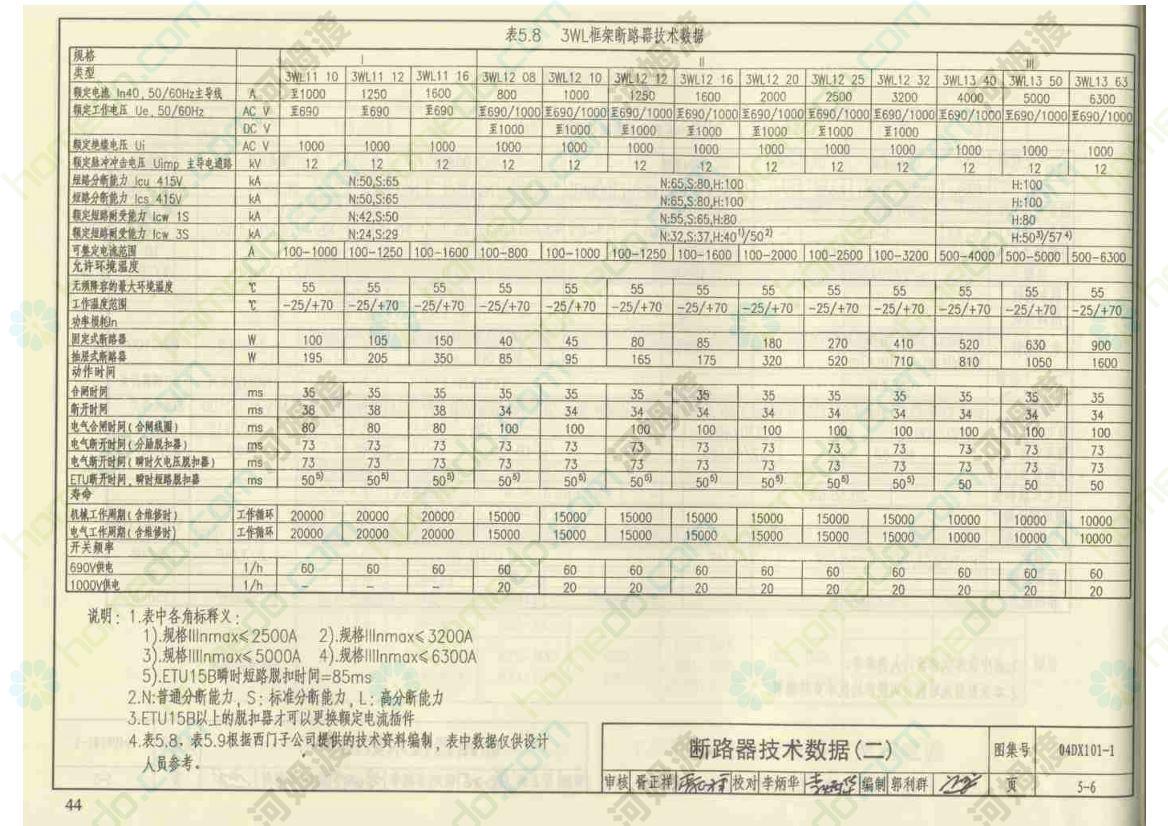 表5.8 3WL框架断路器技术数据
规格 I II III
类型 3WL11 10 3WL11 12 3WL11 16 3WL12 08 3WL12 10 3WL12 12 3WL12 16 3WL12 20 3WL12 25 3WL12 32 3WL13 40 3WL13 50 3WL13 63
额定电流 In40, 50/60Hz主导线 A 至1000 1250 1600 800 1000 1250 1600 2000 2500 3200 4000 5000 6300
额定工作电压 Ue, 50/60Hz AC V 至690 至690 至690 至690/1000 至690/1000 至690/1000 至690/1000 至690/1000 至690/1000 至690/1000 至690/1000 至690/1000 至690/1000
DC V 至1000 至1000 至1000 至1000 至1000 至1000 至1000
额定绝缘电压 Ui AC V 1000 1000 1000 1000 1000 1000 1000 1000 1000 1000 1000 1000 1000
额定脉冲冲击电压 Uimp 主导电通路 kV 12 12 12 12 12 12 12 12 12 12 12 12 12
短路分断能力 Icu 415V kA N:50,S:65 N:65,S:80,H:100 H:100
短路分断能力 Ics 415V kA N:50,S:65 N:65,S:80,H:100 H:100
额定短路耐受能力 Icw 1S kA N:42,S:50 N:55,S:65,H:80 H:80
额定短路耐受能力 Icw 3S kA N:24,S:29 N:32,S:37,H:40¹⁾/50²⁾ H:50³⁾/57⁴⁾
可整定电流范围 A 100-1000 100-1250 100-1600 100-800 100-1000 100-1250 100-1600 100-2000 100-2500 100-3200 500-4000 500-5000 500-6300
允许环境温度
无须降容的最大环境温度 ℃ 55 55 55 55 55 55 55 55 55 55 55 55 55
工作温度范围 ℃ -25/+70 -25/+70 -25/+70 -25/+70 -25/+70 -25/+70 -25/+70 -25/+70 -25/+70 -25/+70 -25/+70 -25/+70 -25/+70
功率损耗In
固定式断路器 W 100 105 150 40 45 80 85 180 270 410 520 630 900
抽屉式断路器 W 195 205 350 85 95 165 175 320 520 710 810 1050 1600
动作时间
合闸时间 ms 35 35 35 35 35 35 35 35 35 35 35 35 35
断开时间 ms 38 38 38 34 34 34 34 34 34 34 34 34 34
电气合闸时间(合闸线圈) ms 80 80 80 100 100 100 100 100 100 100 100 100 100
电气断开时间(分励脱扣器) ms 73 73 73 73 73 73 73 73 73 73 73 73 73
电气断开时间(瞬时欠电压脱扣器) ms 73 73 73 73 73 73 73 73 73 73 73 73 73
ETU断开时间, 瞬时短路脱扣器 ms 50⁵⁾ 50⁵⁾ 50⁵⁾ 50⁵⁾ 50⁵⁾ 50⁵⁾ 50⁵⁾ 50⁵⁾ 50⁵⁾ 50⁵⁾ 50 50 50
寿命
机械工作周期(含维修时) 工作循环 20000 20000 20000 15000 15000 15000 15000 15000 15000 15000 10000 10000 10000
电气工作周期(含维修时) 工作循环 20000 20000 20000 15000 15000 15000 15000 15000 15000 15000 10000 10000 10000
开关频率
690V供电 1/h 60 60 60 60 60 60 60 60 60 60 60 60 60
1000V供电 1/h - - - 20 20 20 20 20 20 20 20 20 20
说明: 1.表中各角标释义:
1).规格IIInmax≤2500A 2).规格IIInmax≤3200A
3).规格IIIInmax≤5000A 4).规格IIIInmax≤6300A
5).ETU15B瞬时短路脱扣时间=85ms
2.N:普通分断能力, S: 标准分断能力, L: 高分断能力
3.ETU15B以上的脱扣器才可以更换额定电流插件
4.表5.8、表5.9根据西门子公司提供的技术资料编制, 表中数据仅供设计
人员参考。
断路器技术数据(二) 图集号 04DX101-1
审核 胥正祥 校对 李炳华 编制 郭利群 页 5-6
44
河姆渡
homedo.com